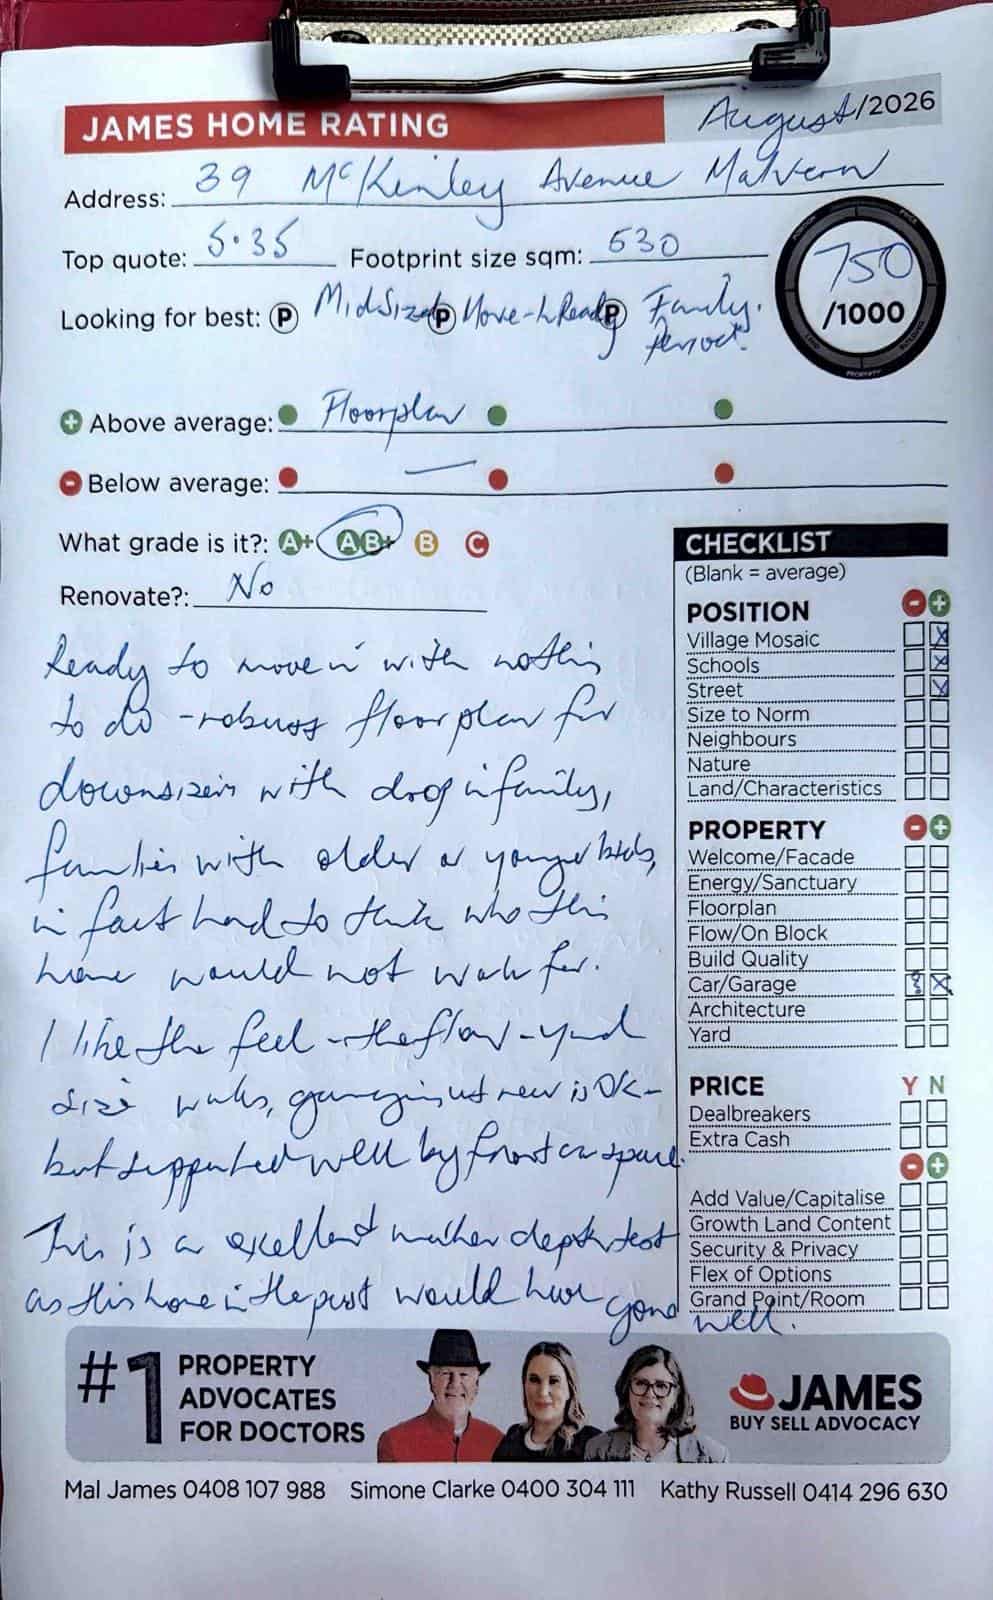 JAMES HOME RATING
August/2026
Address: 39 McKinley Avenue Malvern
Top quote: 5.35 Footprint size sqm: 530
750
/1000
Looking for best: P MidSized P Move-In Ready P Family.
Period.
+ Above average: Floorplan
- Below average: —
What grade is it?: A+ AB+ B C
Renovate?: No
Ready to move in with nothing
to do - robust floorplan for
downsizers with drop in family,
families with older or younger kids,
in fact hard to think who this
home would not work for.
I like the feel - the flow - yard
size works, garaging at rear is OK -
but supported well by front car space.
This is a excellent market depth test
as this home in the past would have gone well.
CHECKLIST
(Blank = average)
POSITION - +
Village Mosaic X
Schools X
Street X
Size to Norm
Neighbours
Nature
Land/Characteristics
PROPERTY - +
Welcome/Facade
Energy/Sanctuary
Floorplan
Flow/On Block
Build Quality
Car/Garage X
Architecture
Yard
PRICE Y N
Dealbreakers
Extra Cash
- +
Add Value/Capitalise
Growth Land Content
Security & Privacy
Flex of Options
Grand Point/Room
#1 PROPERTY
ADVOCATES
FOR DOCTORS
JAMES
BUY SELL ADVOCACY
Mal James 0408 107 988 Simone Clarke 0400 304 111 Kathy Russell 0414 296 630